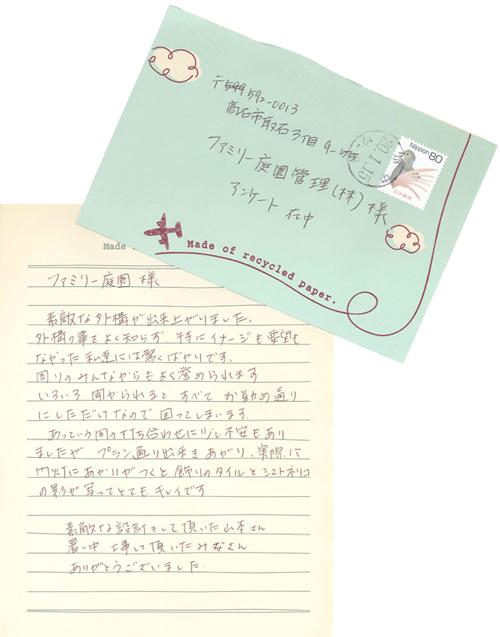 〒599 592-0013
高石市取石3丁目9-
ファミリー庭園管理(株)様
アンケート 在中
Nippon 80
日本郵便
Made of recycled paper.
Made
ファミリー庭園 様
素敵な外構が出来上がりました。
外構の事をよく知らず 特にイメージも要望も
なかった私達には驚くばかりです。
周りのみんなからもよく誉められます
いろいろ 聞かられると すべて お勧め通り
にしただけなので 困ってしまいます。
あっという間の打ち合わせに少し不安もあり
ましたが プラン通り出来きあがり、実際に
門灯にあかりがつくと 飾りのタイルとシマトネリコ
の影が写ってとてもキレイです
素敵な設計をして頂いた山本さん
暑い中 工事して頂いたみなさん
ありがとうございました。